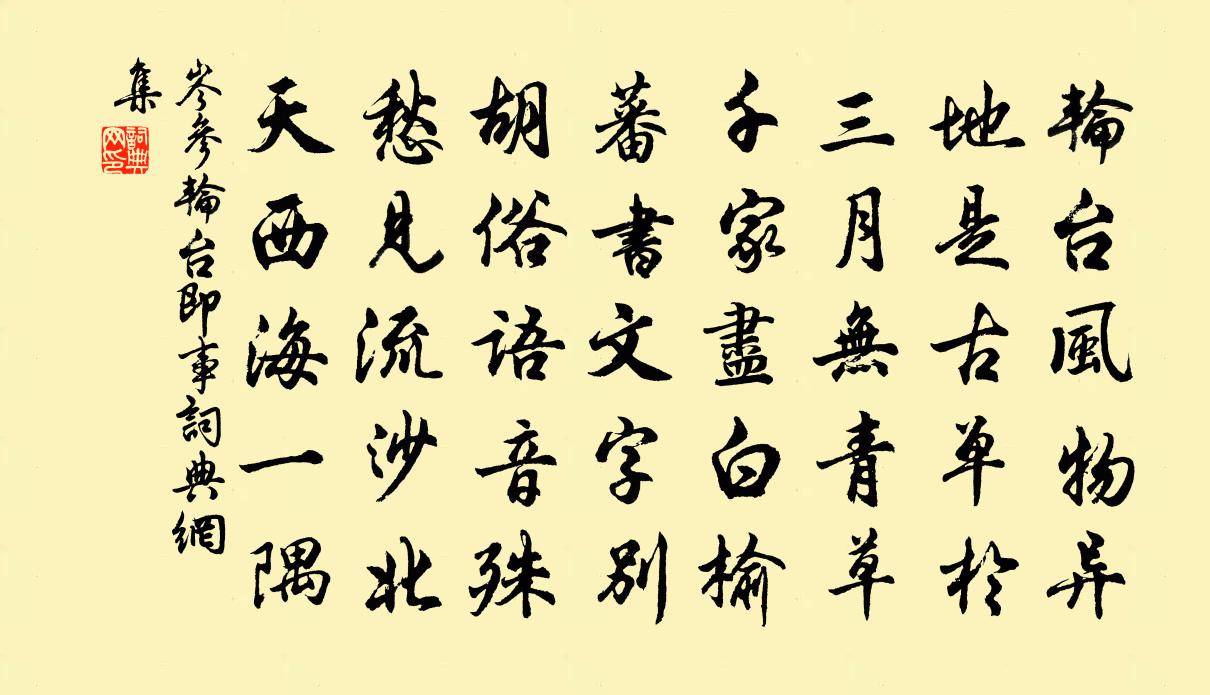 輪台風物异
地是古单於
三月無青草
千家盡白榆
蕃書文字別
胡俗語音殊
愁見流沙北
天西海一隅
岑參輪台即事詞典網
集
詞典
网印